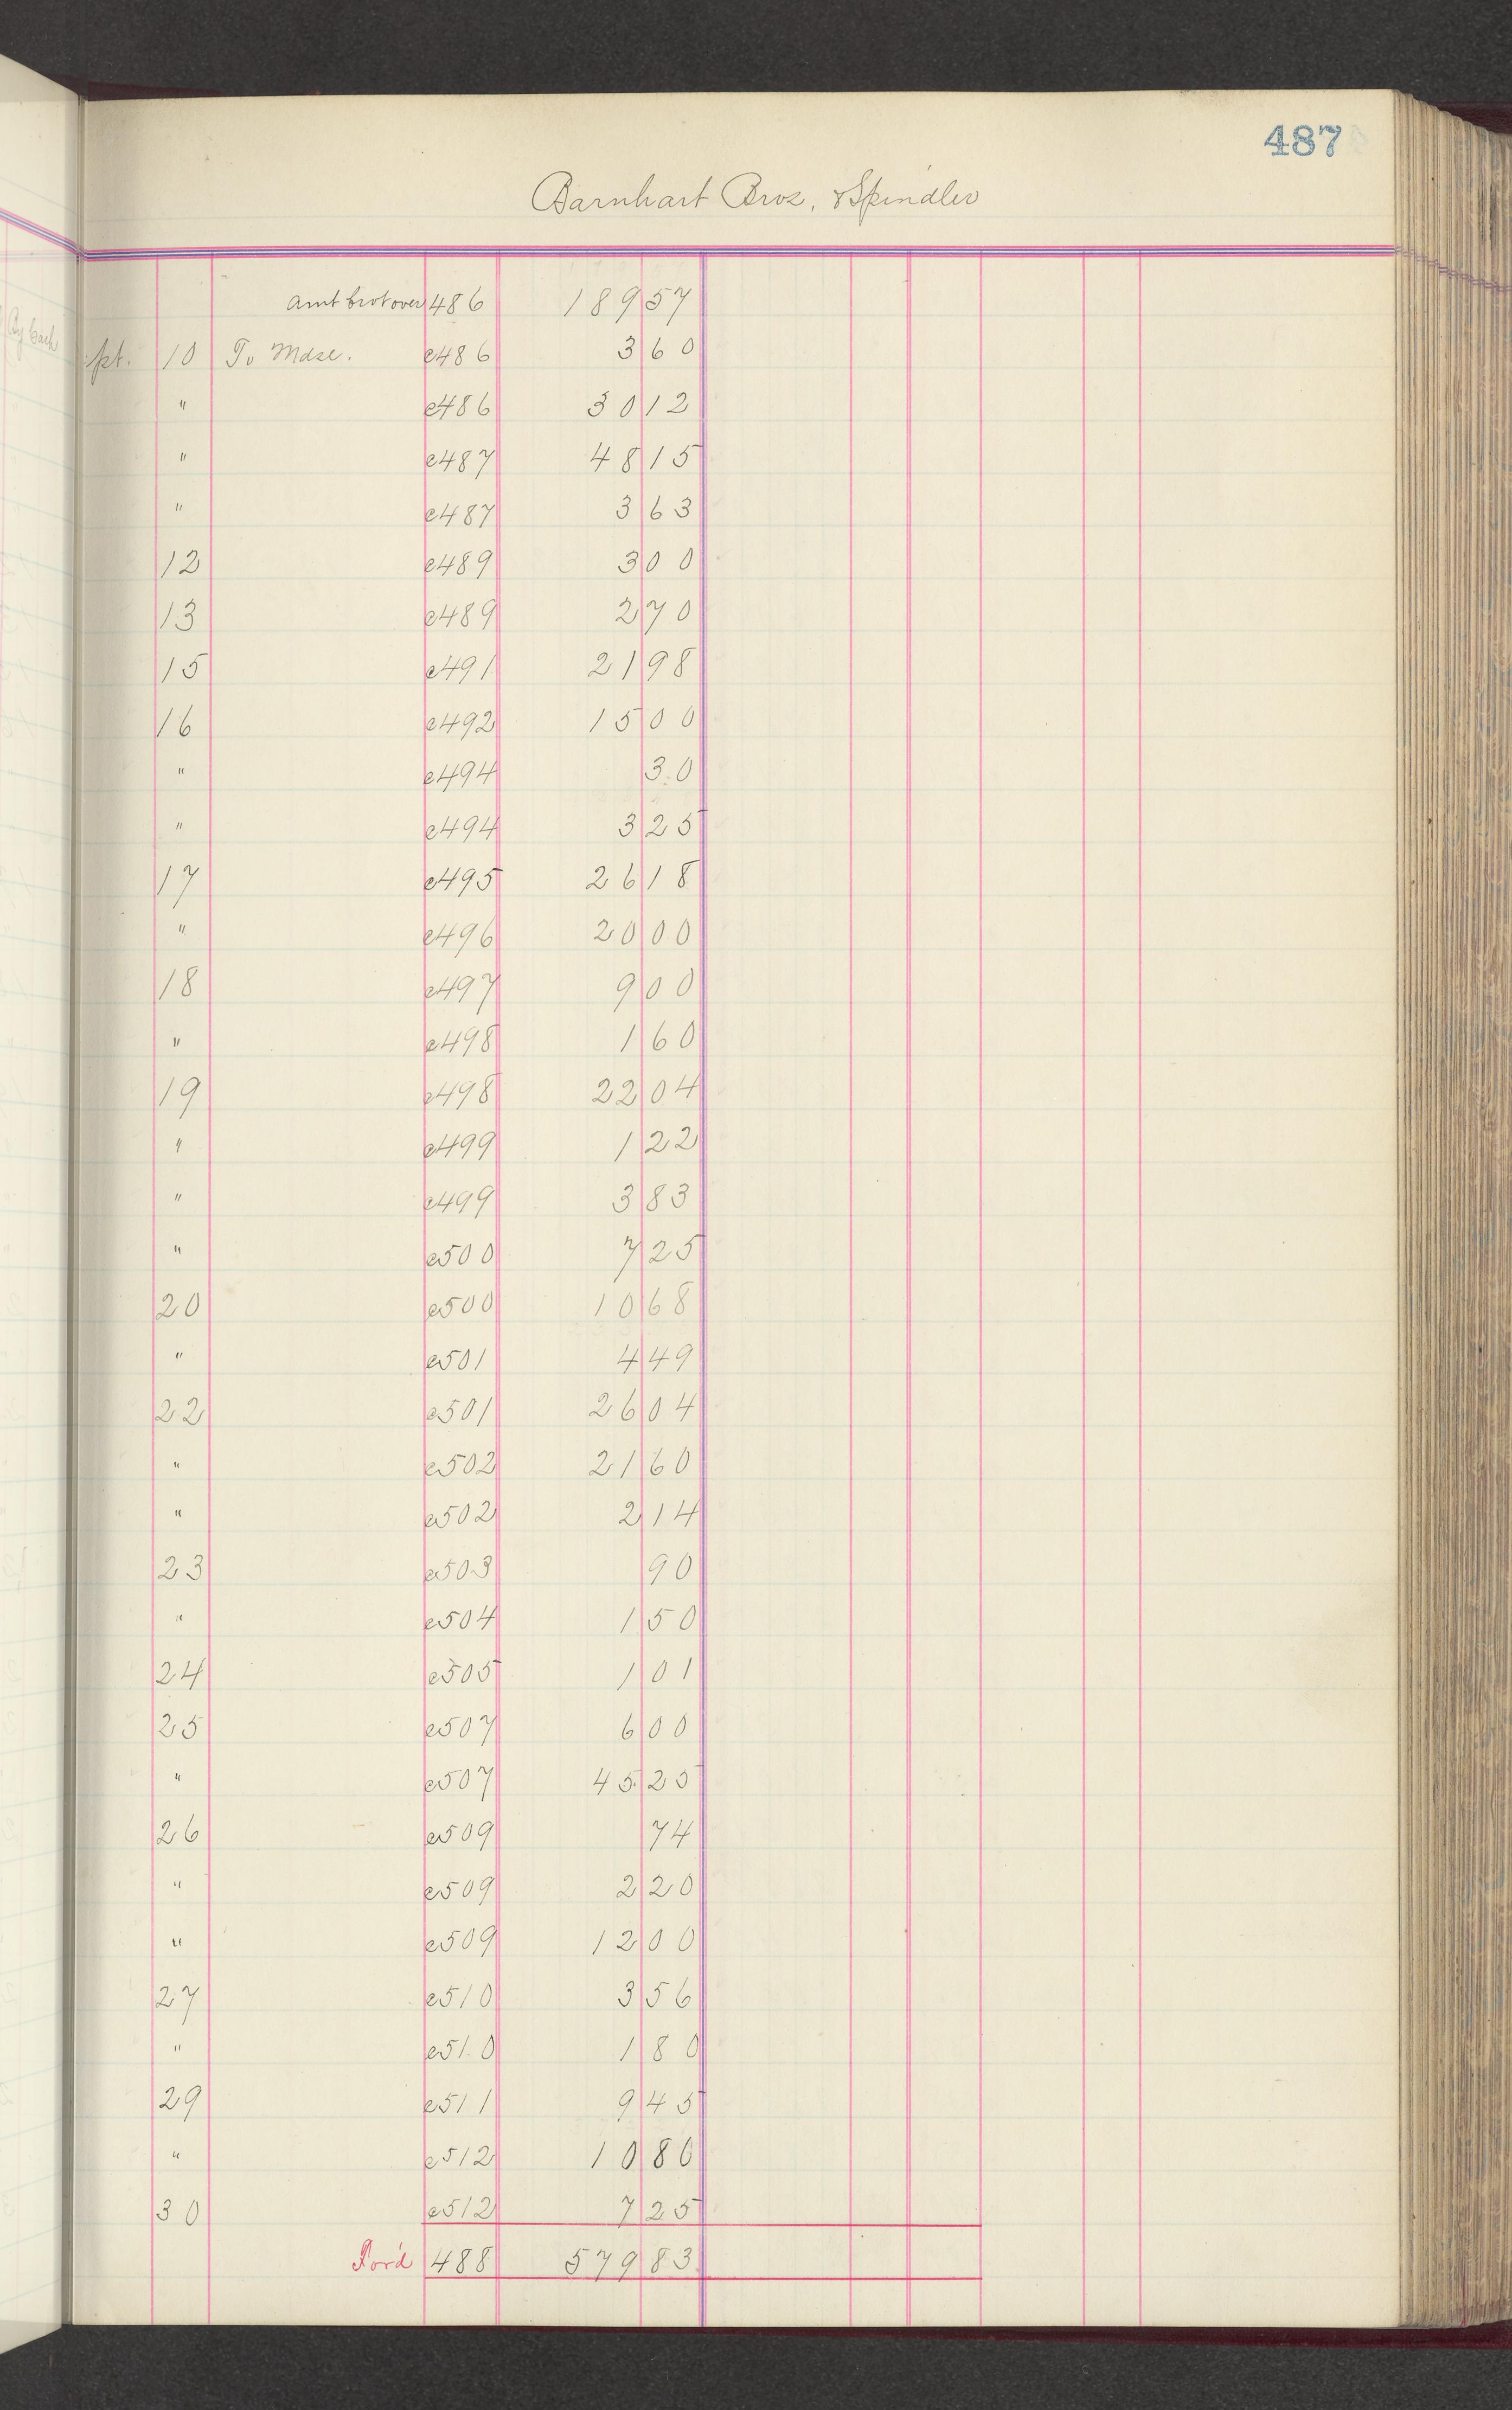 487
Barnhart Bros. & Spindler
Amt brot over 486 189 57
pt. 10 To Mdse. c486 3 60
" c486 30 12
" c487 48 15
" c487 3 63
12 c489 3 00
13 c489 2 70
15 c491 21 98
16 c492 15 00
" c494 30
" c494 3 25
17 c495 26 18
" c496 20 00
18 c497 9 00
" c498 1 60
19 c498 22 04
" c499 1 22
" c499 3 83
" c500 7 25
20 c500 10 68
" c501 4 49
22 c501 26 04
" c502 21 60
" c502 2 14
23 c503 90
" c504 1 50
24 c505 1 01
25 c507 6 00
" c507 45 25
26 c509 74
" c509 2 20
" c509 12 00
27 c510 3 56
" c510 1 80
29 c511 9 45
" c512 10 80
30 c512 7 25
For'd 488 579 83
By Cash